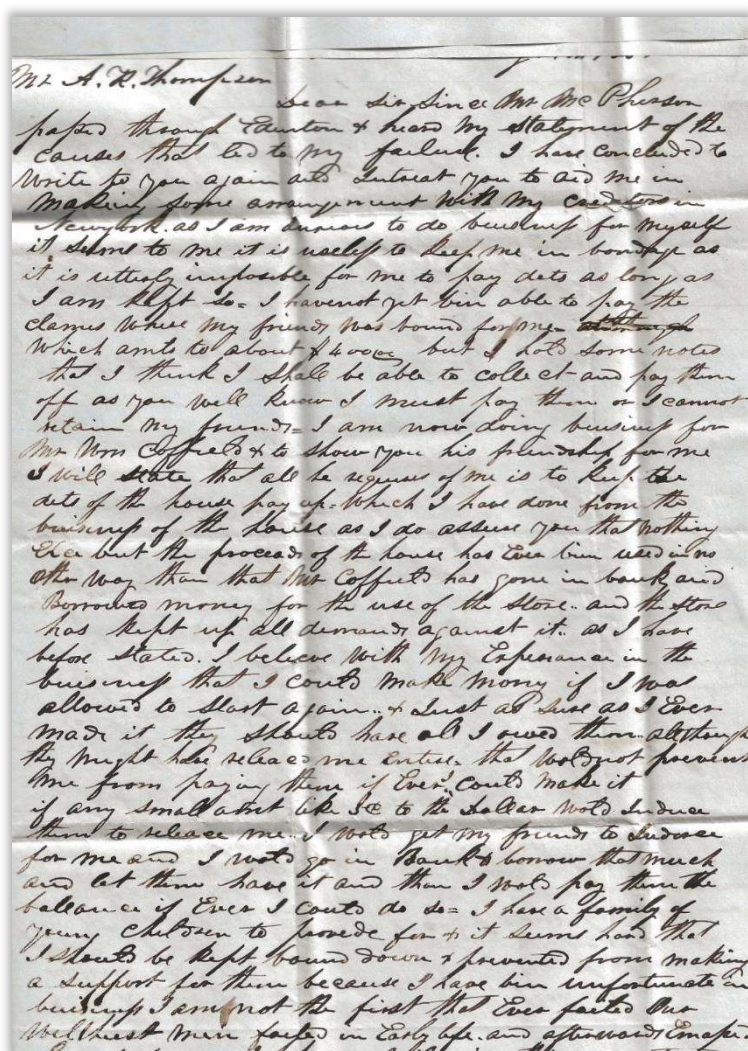 Mr A. R. Thompson
Dear Sir Since Mr McPherson
passed through Edenton & heard my statement of the
causes that led to my failure. I have concluded to
write to you again and Intreat you to aid me in
making some arrangement with my creditors in
Newyork. as I am to do buisness for myself
it seems to me it is useless to keep me in bondage as
it is utterly imposible for me to pay dets as long as
I am kept so = I have not yet bin able to pay the
clames where my friends was bound for me =
which amts to about $4000 but I hold some notes
that I think I shall be able to collect and pay them
off as you well know I must pay them or I cannot
retain my friends = I am now doing buisness for
Mr Wm Coffield & to show you his friendship for me
I will state that all he requires of me is to keep the
dets of the house pay up = which I have done from the
buisness of the house as I do assure you that nothing
Else but the proceeds of the house has Ever bin used in no
other way than that Mr Coffield has gone in bank and
Borrowed money for the use of the store.. and the store
has kept up all demands against it.. as I have
before stated. I believe with my Experiance in the
buisness that I could make mony if I was
allowed to start again.. & Just as sure as I Ever
made it they should have all I owed them although
they might have released me Entire. that wold not prevent
me from paying them if Ever I could make it
if any small amt like to the Dollar wold Induce
them to release me.. I wold get my friends to Indorse
for me and I wold go in Bank & borrow that much
and let them have it and than I wold pay them the
ballance if Ever I could do so = I have a family of
young children to provide for & it seems hard that
I should be kept bound down & prevented from making
a support for them because I have bin unfortunate in
buisness I am not the first that Ever failed Our
welthiest men failed in Early life. and afterwards